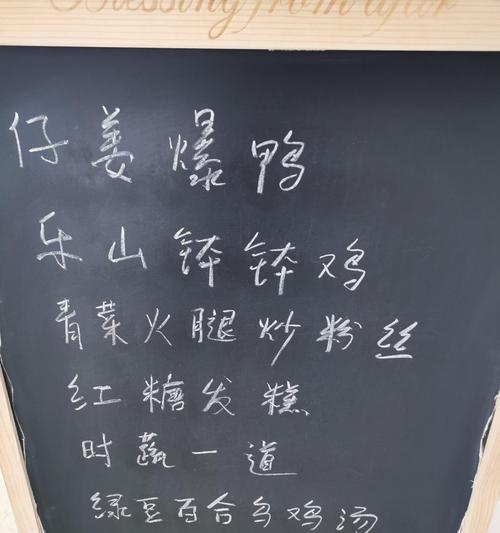 Blessing from afar
仔姜爆鸭
乐山钵钵鸡
青菜火腿炒粉丝
红糖发糕
时蔬一道
绿豆百合乌鸡汤